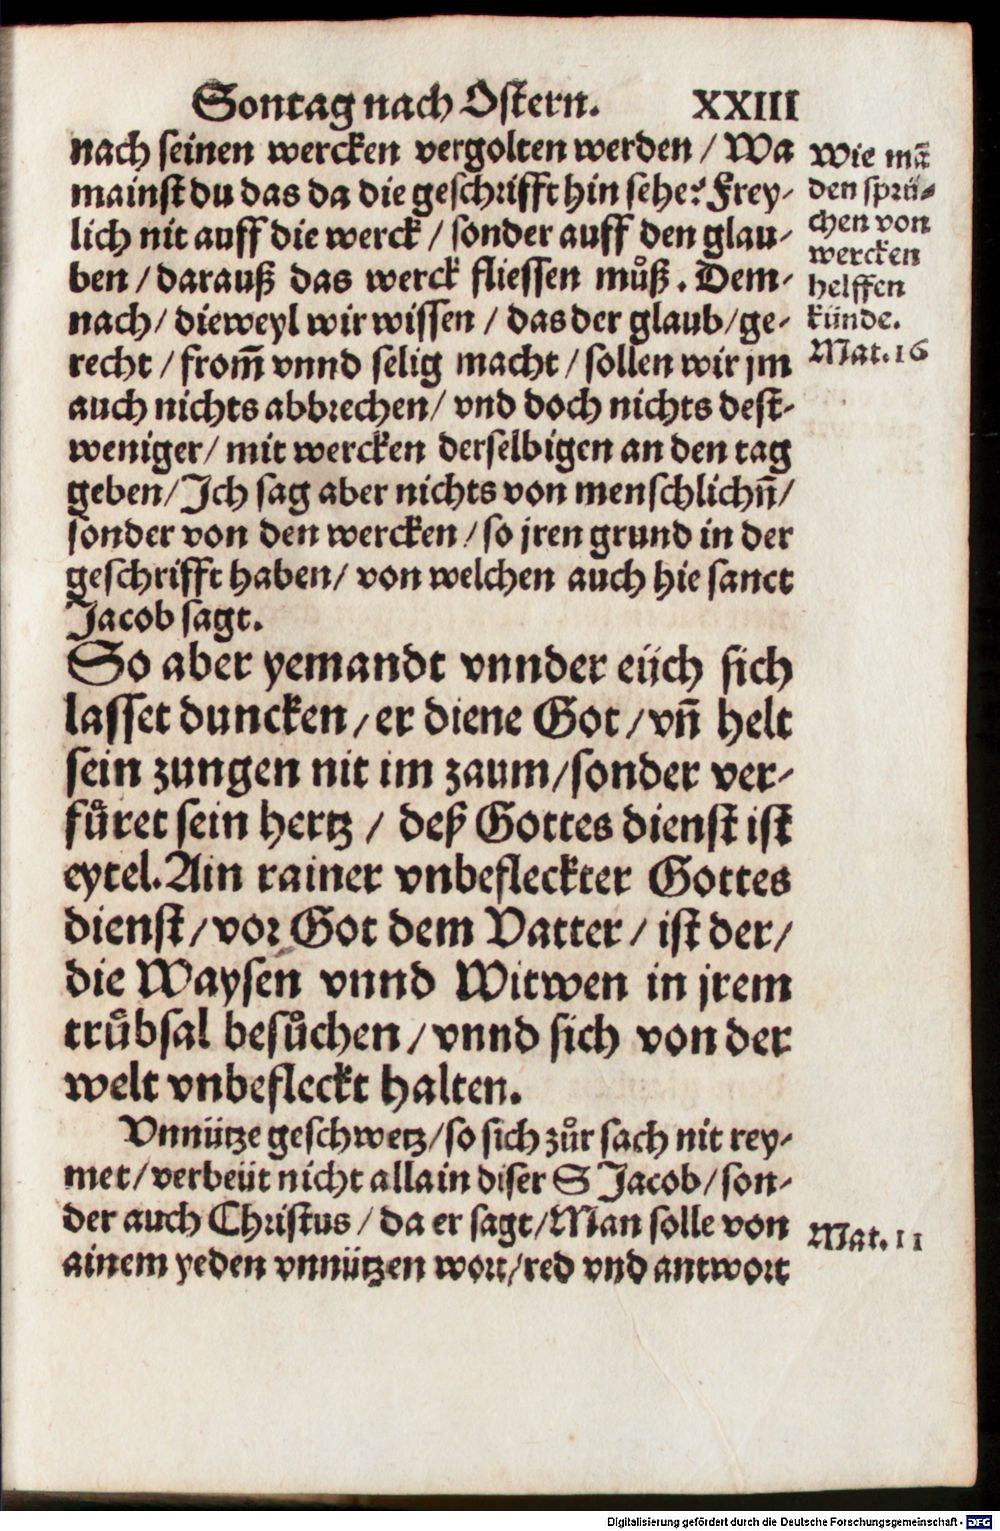 Sontag nach Ostern. XXIII
nach seinen wercken vergolten werden / Wa
mainst du das da die geschrifft hin sehe? Frey-
lich nit auff die werck / sonder auff den glau-
ben / darauß das werck fliessen můß. Dem-
nach / dieweyl wir wissen / das der glaub / ge-
recht / from̃ vnnd selig macht / sollen wir jm
auch nichts abbrechen / vnd doch nichts dest-
weniger / mit wercken derselbigen an den tag
geben / Ich sag aber nichts von menschlichñ /
sonder von den wercken / so jren grund in der
geschrifft haben / von welchen auch hie sanct
Jacob sagt.
So aber yemandt vnnder eüch sich
lasset duncken / er diene Got / vñ helt
sein zungen nit im zaum / sonder ver-
fůret sein hertz / deß Gottes dienst ist
eytel. Ain rainer vnbefleckter Gottes
dienst / vor Got dem Vatter / ist der /
die Waysen vnnd Witwen in jrem
trůbsal besůchen / vnnd sich von der
welt vnbefleckt halten.
Vnnütze geschwetz / so sich zůr sach nit rey-
met / verbeüt nicht allain diser S Jacob / son-
der auch Christus / da er sagt / Man solle von
ainem yeden vnnützen wort / red vnd antwort
Wie mã
den sprü-
chen von
wercken
helffen
künde.
Mat. 16
Mat. 11
Digitalisierung gefördert durch die Deutsche Forschungsgemeinschaft - DFG